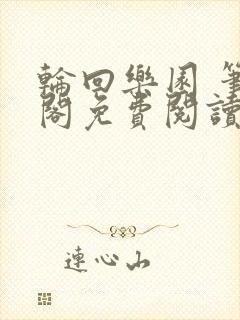 輪回樂園 筆
閣免費閱讀
連心山